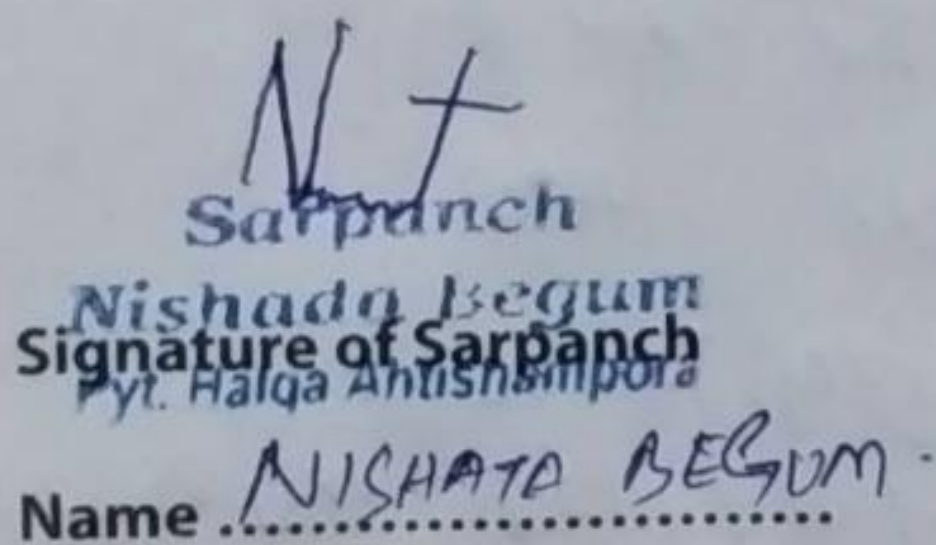 Sarpanch
Nishada Begum
Signature of Sarpanch
Pyt. Halqa Ahtishampora
Name ................................ NISHATA BEGUM.